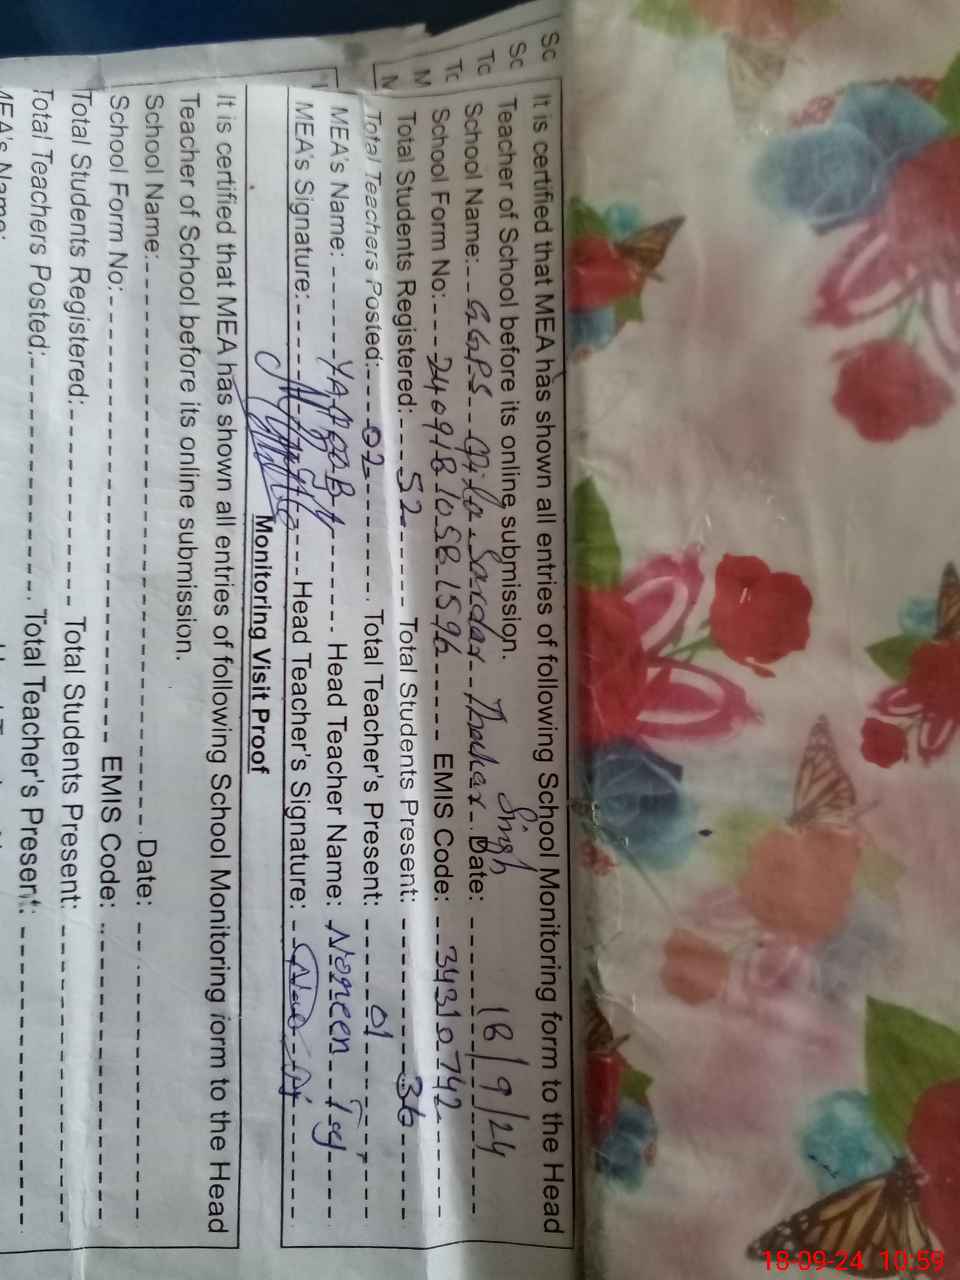 Sc
Sc
Tc
Tc
M
M
It is certified that MEA has shown all entries of following School Monitoring form to the Head
Teacher of School before its online submission.
School Name: GGPS Qila Sardar Thakar Singh Date: 18/9/24
School Form No: EMIS Code: 34310742
Total Students Registered: 52 Total Students Present: 36
Total Teachers Posted: 02 Total Teacher's Present: 01
MEA's Name: Head Teacher Name: Noreen
MEA's Signature: Head Teacher's Signature:
Monitoring Visit Proof
It is certified that MEA has shown all entries of following School Monitoring form to the Head
Teacher of School before its online submission.
School Name: Date:
School Form No: EMIS Code:
Total Students Registered: Total Students Present:
Total Teachers Posted: Total Teacher's Present:
MEA's Name:
18-09-24 10:59